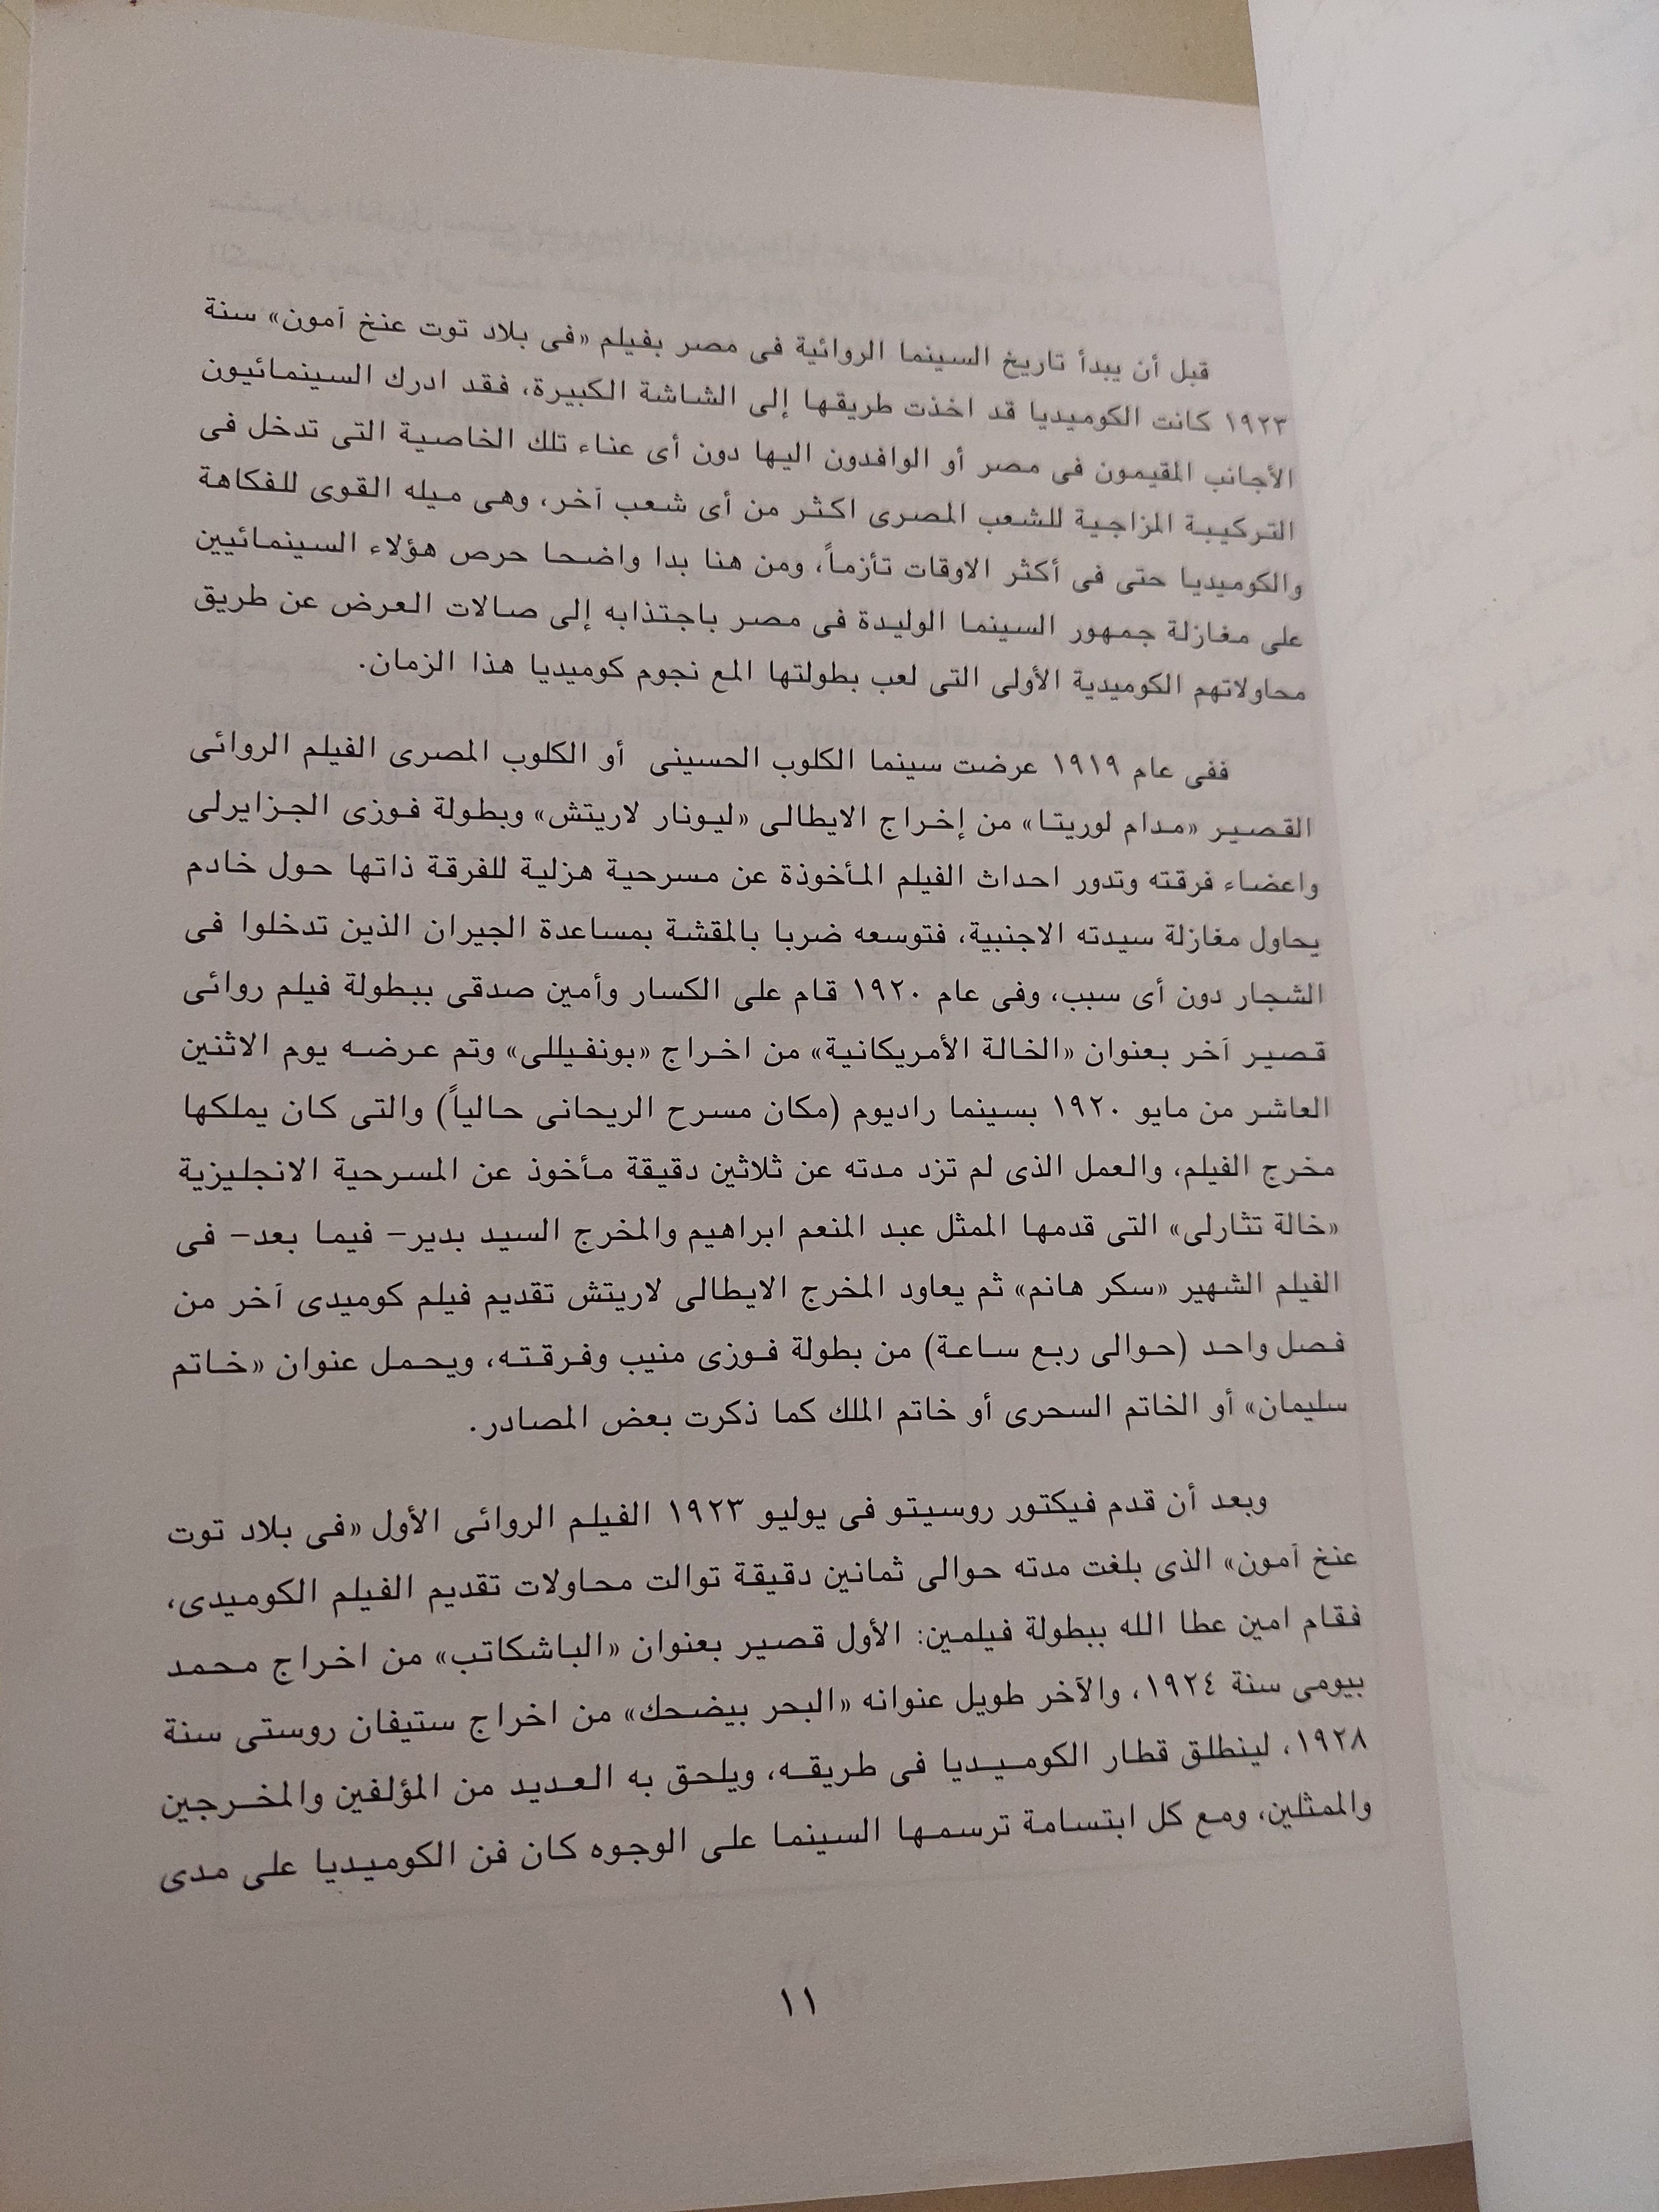 قبل أن يبدأ تاريخ السينما الروائية فى مصر بفيلم «فى بلاد توت عنخ آمون» سنة
١٩٢٣ كانت الكوميديا قد اخذت طريقها إلى الشاشة الكبيرة، فقد ادرك السينمائيون
الأجانب المقيمون فى مصر أو الوافدون اليها دون أى عناء تلك الخاصية التى تدخل فى
التركيبة المزاجية للشعب المصرى اكثر من أى شعب آخر، وهى ميله القوى للفكاهة
والكوميديا حتى فى أكثر الاوقات تأزماً، ومن هنا بدا واضحا حرص هؤلاء السينمائيين
على مغازلة جمهور السينما الوليدة فى مصر باجتذابه إلى صالات العرض عن طريق
محاولاتهم الكوميدية الأولى التى لعب بطولتها المع نجوم كوميديا هذا الزمان.
ففى عام ١٩١٩ عرضت سينما الكلوب الحسينى أو الكلوب المصرى الفيلم الروائى
القصير «مدام لوريتا» من إخراج الايطالى «ليونار لاريتش» وبطولة فوزى الجزايرلى
واعضاء فرقته وتدور احداث الفيلم المأخوذة عن مسرحية هزلية للفرقة ذاتها حول خادم
يحاول مغازلة سيدته الاجنبية، فتوسعه ضربا بالمقشة بمساعدة الجيران الذين تدخلوا فى
الشجار دون أى سبب، وفى عام ١٩٢٠ قام على الكسار وأمين صدقى ببطولة فيلم روائى
قصير آخر بعنوان «الخالة الأمريكانية» من اخراج «بونفيللى» وتم عرضه يوم الاثنين
العاشر من مايو ١٩٢٠ بسينما راديوم (مكان مسرح الريحانى حالياً) والتى كان يملكها
مخرج الفيلم، والعمل الذى لم تزد مدته عن ثلاثين دقيقة مأخوذ عن المسرحية الانجليزية
«خالة تثارلى» التى قدمها الممثل عبد المنعم ابراهيم والمخرج السيد بدير– فيما بعد– فى
الفيلم الشهير «سكر هانم» ثم يعاود المخرج الايطالى لاريتش تقديم فيلم كوميدى آخر من
فصل واحد (حوالى ربع ساعة) من بطولة فوزى منيب وفرقته، ويحمل عنوان «خاتم
سليمان» أو الخاتم السحرى أو خاتم الملك كما ذكرت بعض المصادر.
وبعد أن قدم فيكتور روسيتو فى يوليو ١٩٢٣ الفيلم الروائى الأول «فى بلاد توت
عنخ آمون» الذى بلغت مدته حوالى ثمانين دقيقة توالت محاولات تقديم الفيلم الكوميدى،
فقام امين عطا الله ببطولة فيلمين: الأول قصير بعنوان «الباشكاتب» من اخراج محمد
بيومى سنة ١٩٢٤، والآخر طويل عنوانه «البحر بيضحك» من اخراج ستيفان روستى سنة
١٩٢٨، لينطلق قطار الكوميديا فى طريقه، ويلحق به العديد من المؤلفين والمخرجين
والممثلين، ومع كل ابتسامة ترسمها السينما على الوجوه كان فن الكوميديا على مدى
١١